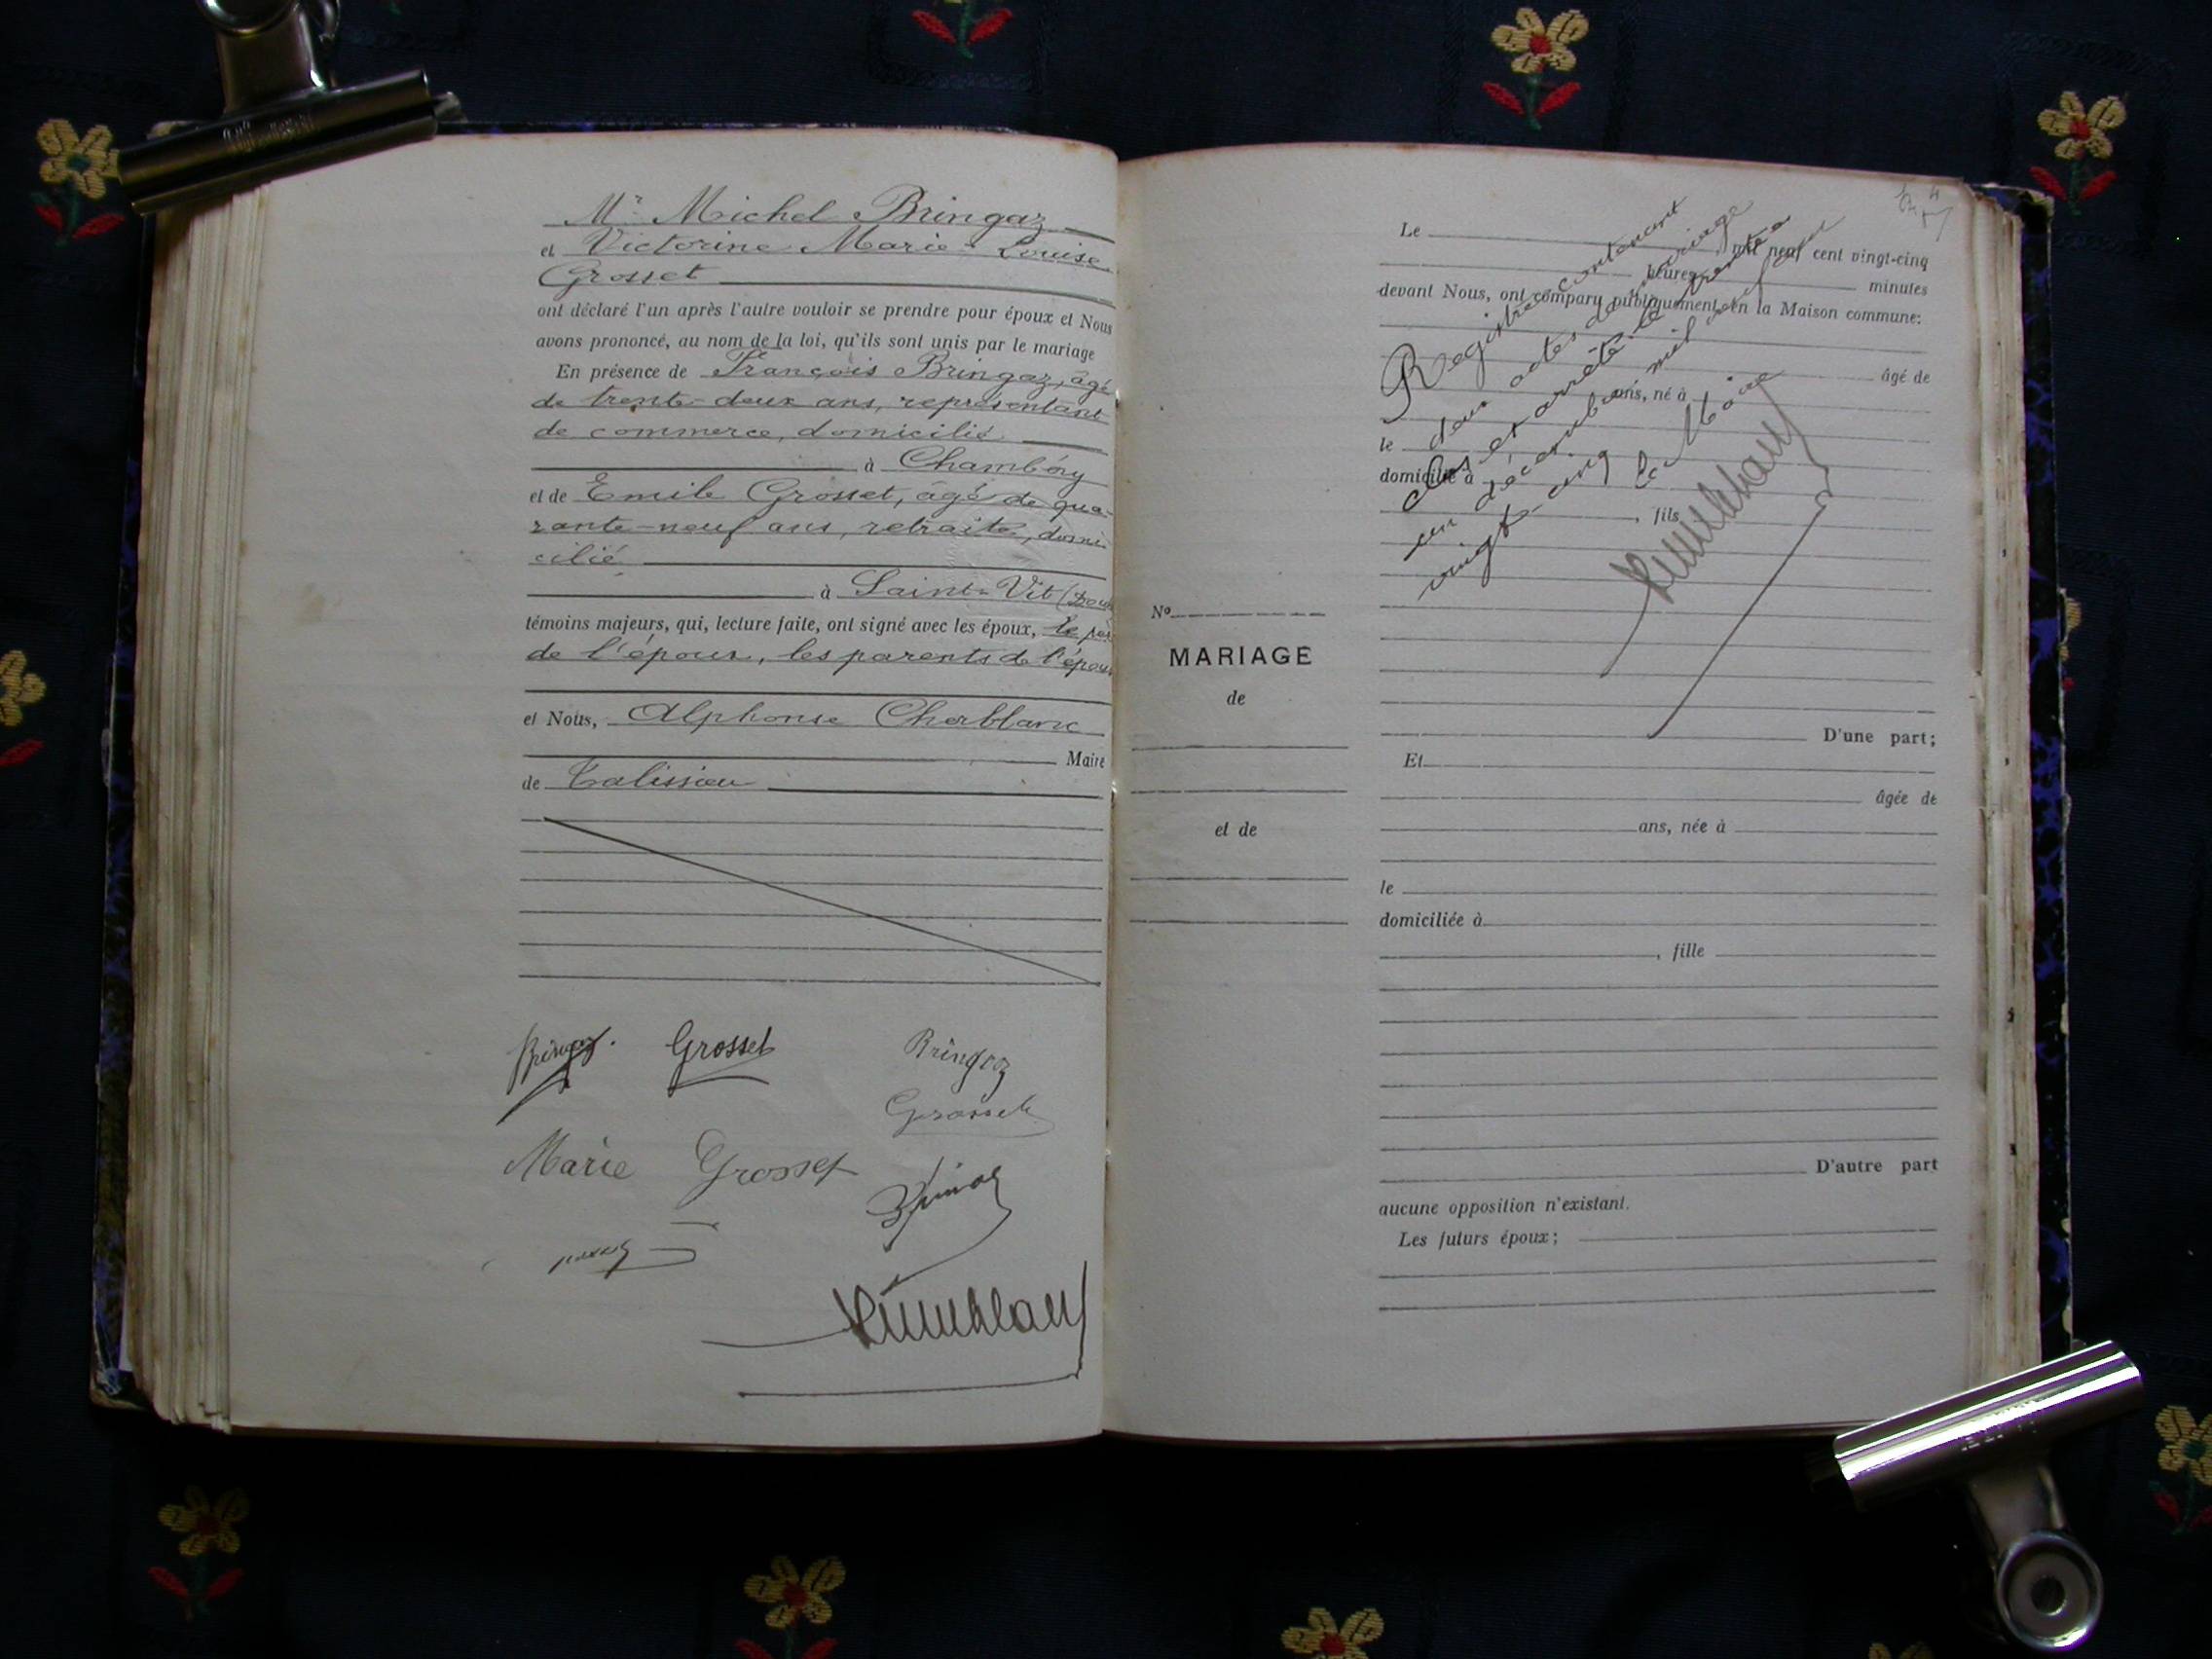 Mr Michel Bringaz
et Victorine Marie-Louise
Grosset
ont déclaré l'un après l'autre vouloir se prendre pour époux et Nous
avons prononcé, au nom de la loi, qu'ils sont unis par le mariage
En présence de François Bringaz, âgé
de trente-deux ans, représentant
de commerce, domicilié
à Chambéry
et de Emile Grosset, âgé de qua-
rante-neuf ans, retraité, domi-
cilié
à Saint-Vit (Dou
témoins majeurs, qui, lecture faite, ont signé avec les époux, le pèr
de l'époux, les parents de l'épou
et Nous, Alphonse Cherblanc
Maire
de Talissieu
Bringaz. Grosset Bringaz
Grosset
Marie Grosset
Cherblanc
Le
mil neuf cent vingt-cinq
heures minutes
devant Nous, ont comparu publiquement en la Maison commune:
âgé de
ans, né à
le
domicilié à
, fils
D'une part;
Et
âgée de
ans, née à
le
domiciliée à
, fille
D'autre part
aucune opposition n'existant.
Les futurs époux;
No
MARIAGE
de
et de
Registre contenant
deux actes de mariage
clos et arrêté le trente
un décembre mil neuf cent
vingt-cinq Le Maire
Cherblanc